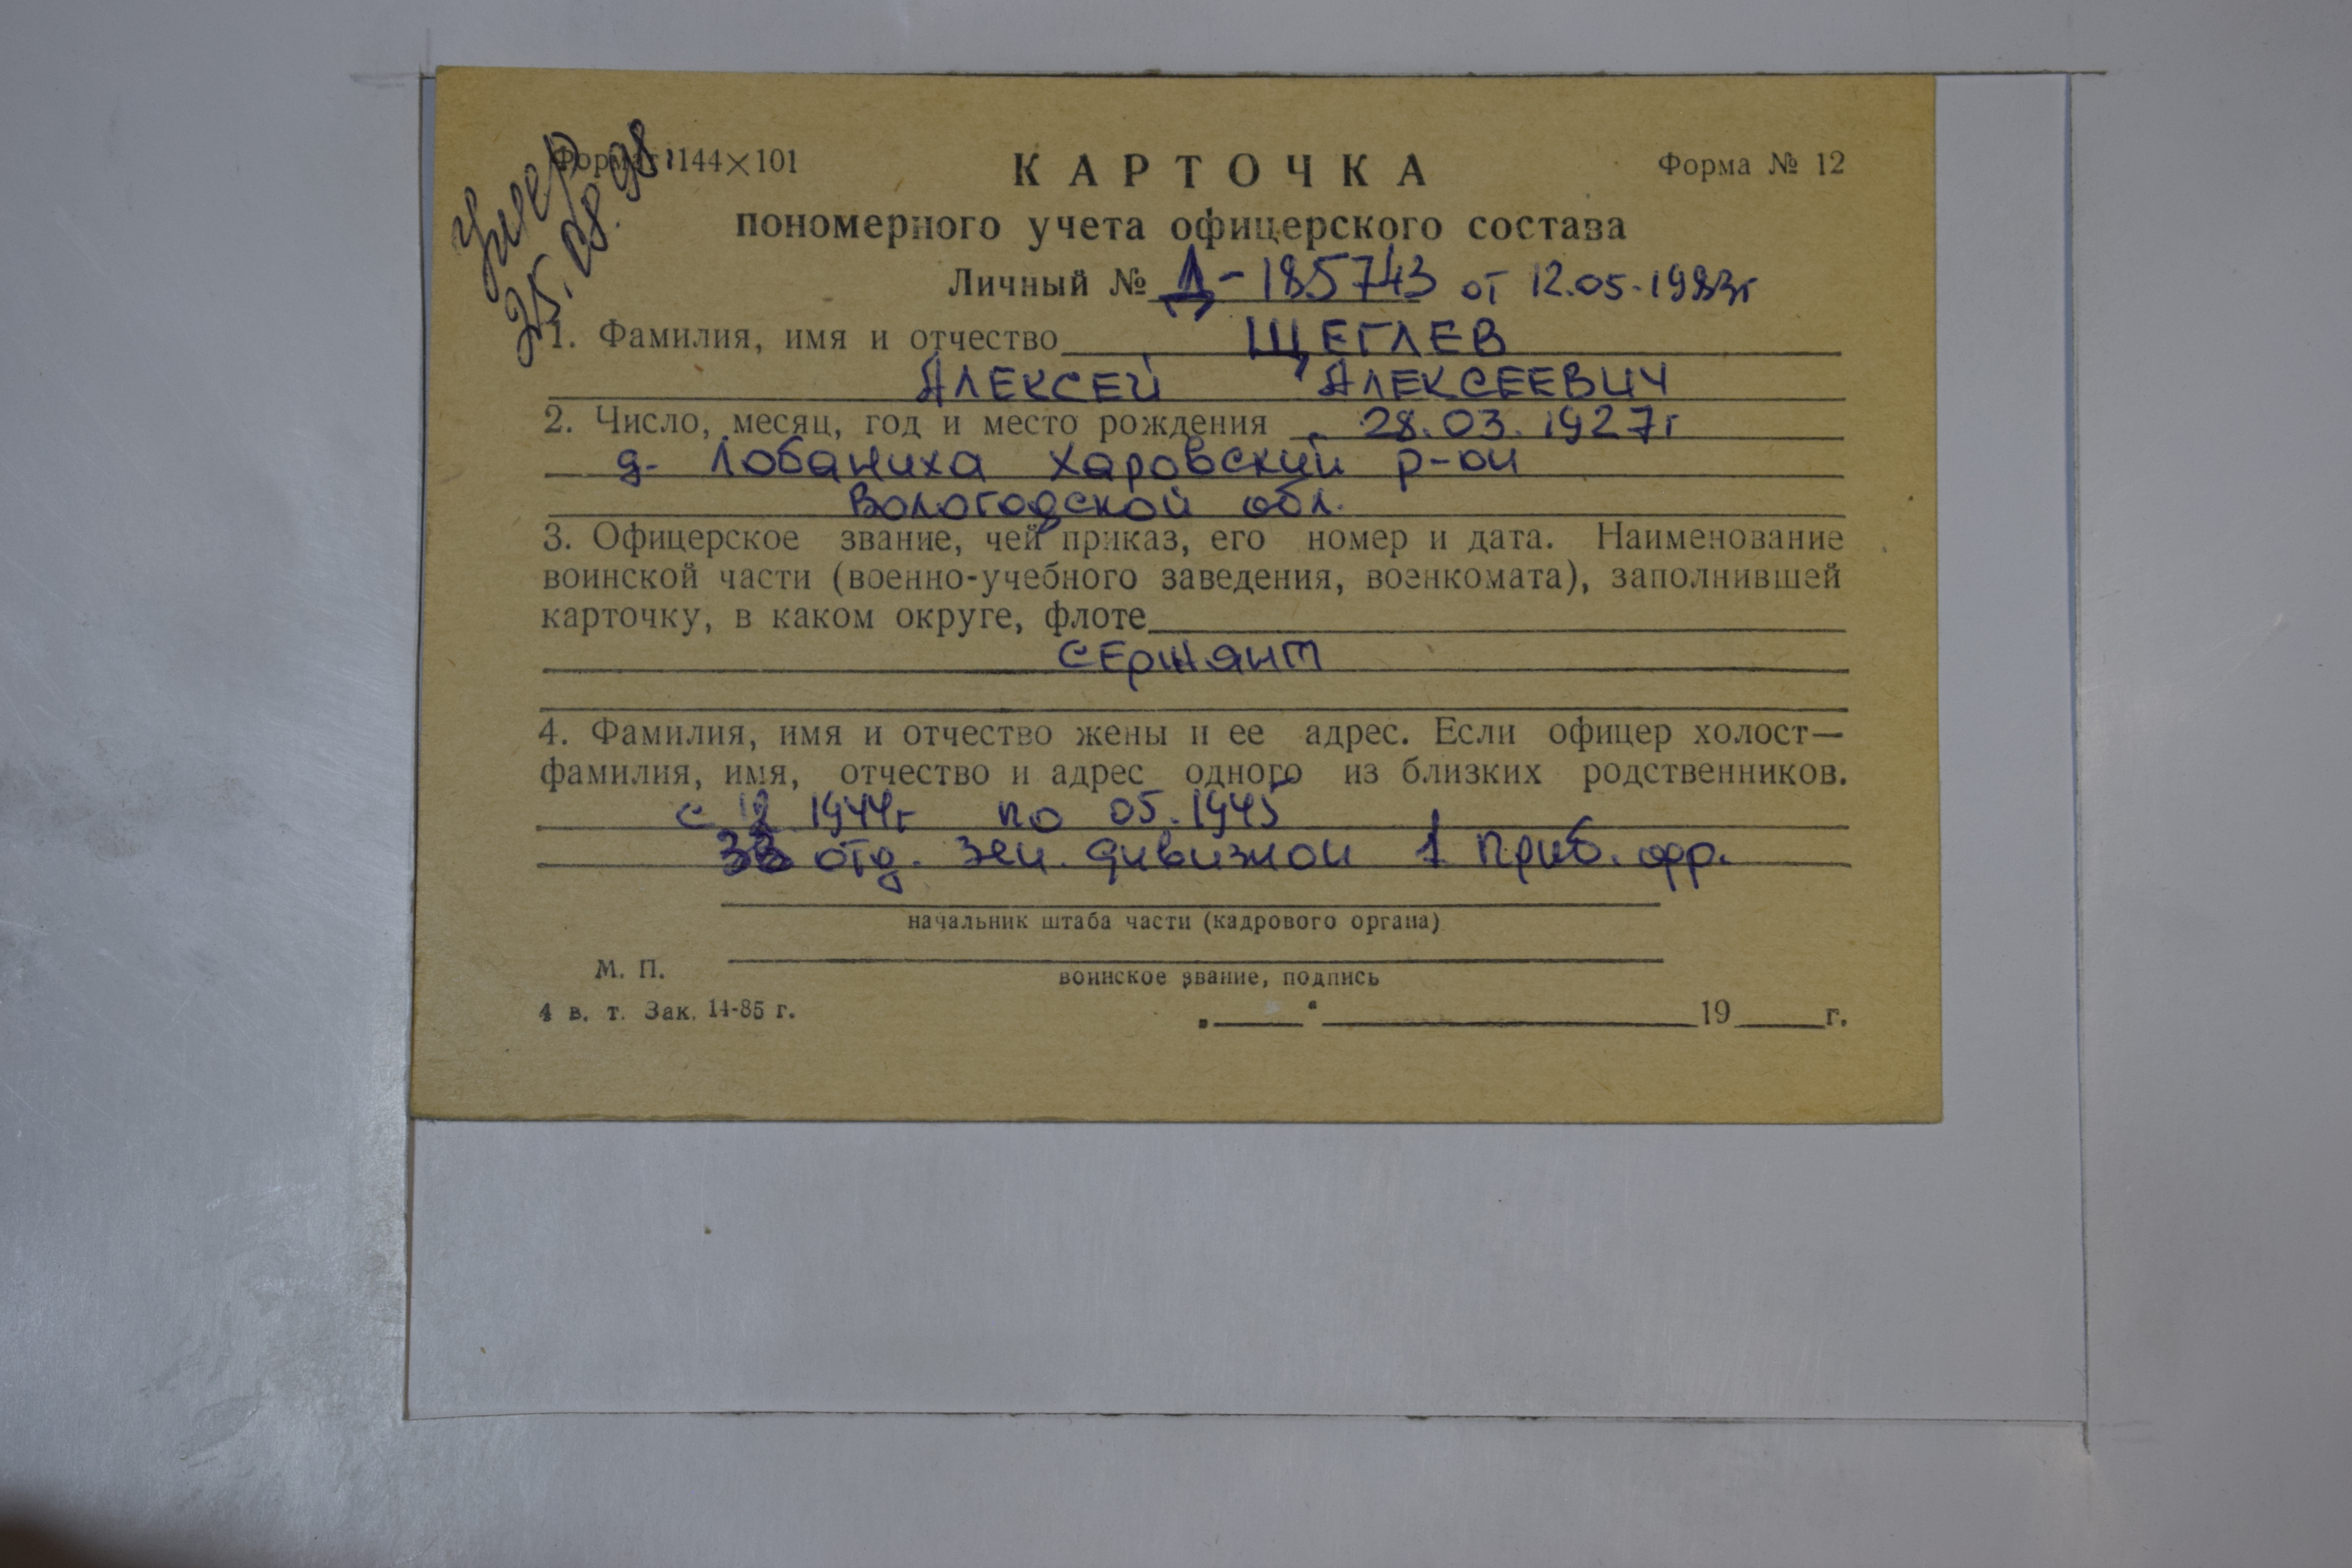 Умер
25.08.98.
Формат 144×101
КАРТОЧКА
Форма № 12
пономерного учета офицерского состава
Личный № Д-185743 от 12.05.1983г
1. Фамилия, имя и отчество ЩЕГЛЕВ
АЛЕКСЕЙ АЛЕКСЕЕВИЧ
2. Число, месяц, год и место рождения 28.03.1927г
д. Лобаниха Харовский р-он
Вологодской обл.
3. Офицерское звание, чей приказ, его номер и дата. Наименование
воинской части (военно-учебного заведения, военкомата), заполнившей
карточку, в каком округе, флоте
СЕРЖАНТ
4. Фамилия, имя и отчество жены и ее адрес. Если офицер холост—
фамилия, имя, отчество и адрес одного из близких родственников.
с 12 1944г по 05.1945
отд. зен. дивизион 1 Приб. фр.
начальник штаба части (кадрового органа)
М. П.
воинское звание, подпись
4 в. т. Зак. 14-85 г.
„ “ 19 г.